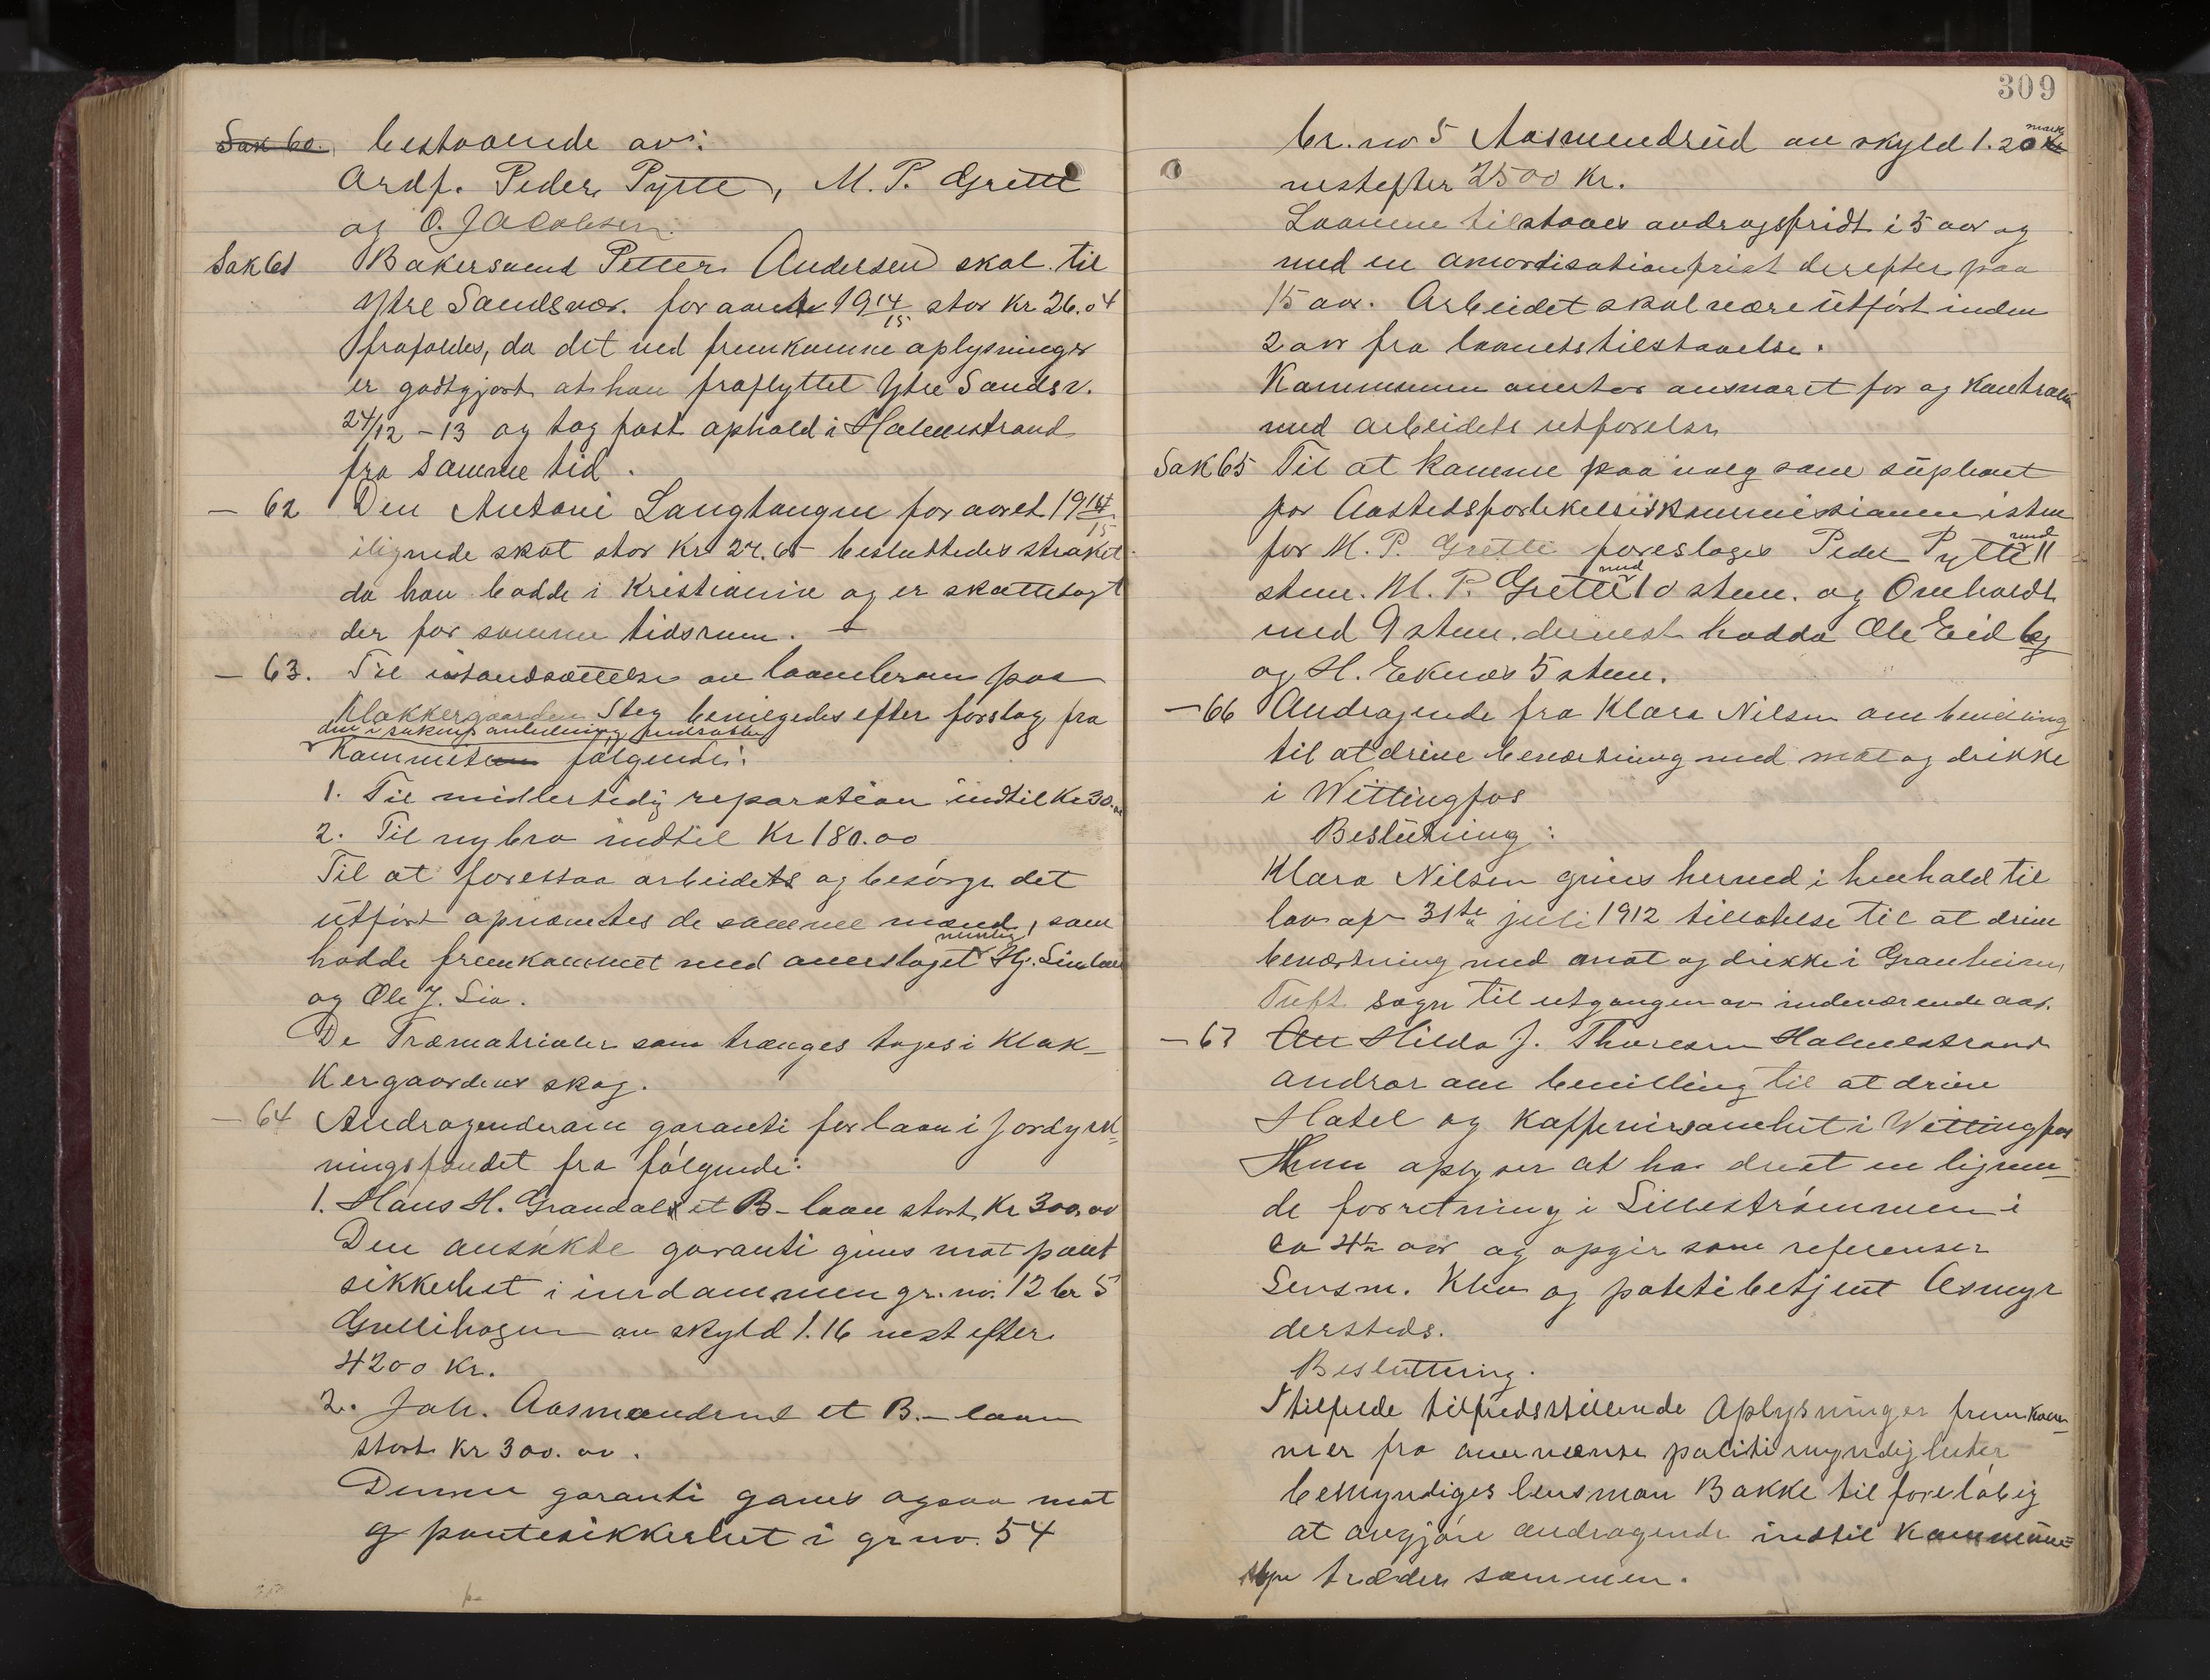 Sak 60. bestaaende av:
Ordf. Peder Pytte, M. P. Grette
og O. Jacobsen.
Sak 61 Bakersvend Petter Andersen skat til
Ytre Sandsvær. for aaret 1914/15 stor kr 26.04
frafaldes, da det ved fremkomne oplysninger
er godtgjort at han fraflyttet Ytre Sandsv.
24/12 - 13 og tog fast ophold i Holmestrand
fra samme tid.
— 62 Den Antoni Langtangen for aaret 1914/15
ilignede skat stor Kr 27.65 besluttedes strøket
da han bodde i Kristiania og er skattelagt
der for samme tidsrum. —
— 63. Til istandsættelse av laavebroen paa
Klokkergaarden Steg bevilgedes efter forslag fra
den i sakens anledning
Komiteen følgende:
1. Til midlertidig reparation indtil Kr 30.00
2. Til ny bro indtil Kr 180.00
Til at forestaa arbeidets og besørge det
utført opnævntes de samme mænd, som
nemlig
hadde fremkommet med overslaget Hj.
og Ole J. Lia.
De Træmatrialer som trænges tages i Klok-
kergaardens skog.
— 64 Andragender om garanti for laan i Jordyrk-
ningsfondet fra følgende:
1. Hans H. Grandalet et B-laan stort Kr 300.00
Den ansøkte garanti gives mot pant
sikkerhet i eiendommen gr. nr. 12 br 5
Gullihagen av skyld 1.16 nest efter
4200 Kr.
2. Joh. Aasmundrud et B.-laan
stort Kr 300.00.
Denne garanti gaves ogsaa mot
pantesikkerhet i gr no. 54
309
mark
br. no 5 Aasmundrud av skyld 1.20 kr
nestefter 2500 Kr.
Laanene tilstaaes avdragsfridt i 5 aar og
med en amortisationsfrist derefter paa
15 aar. Arbeidet skal være utført inden
2 aar fra laanets tilstaaelse.
Kommunen overtar ansvaret for og Kontrolen
med arbeidets utførelse
Sak 65 Til at komme paa valg som supleant
for Aastedsforlikelseskommissionen isteden
for M. P. Grette foresloges Peder Pytte med 11
stem. M. P. Grette med 10 stem. og Omholdt
med 9 stem. dernest hadde Ole Eid 6
og H. Eknes 5 stem.
— 66 Andragende fra Klara Nilsen om bevilling
til at drive bevertning med mat og drikke
i Wittingfos
Beslutning:
Klara Nilsen gives herved i henhold til
lov af 31te juli 1912 tillatelse til at drive
bevertning med mat og drikke i Granheim,
Tuft sogn til utgangen av indeværende aar.
— 67 An Hilda J. Thoresen Holmestrand
andrar om bevilling til at drive
Hotel og Kaffevirsomhet i Wittingfos
Hun oplyser at ha drevet en lignen-
de forretning i Lillestrømmen i
ca 4½ aar og opgir som referenser
Lensm. Kleve og politibetjent Asmyr
dersteds.
Beslutning.
I tilfelde tilfredsstillende oplysninger fremkom-
mer fra ovennævnte politimyndigheter
bemyndiges lensman Bakke til foreløbig
at avgjøre andragende indtil kommune-
styre træder sammen.